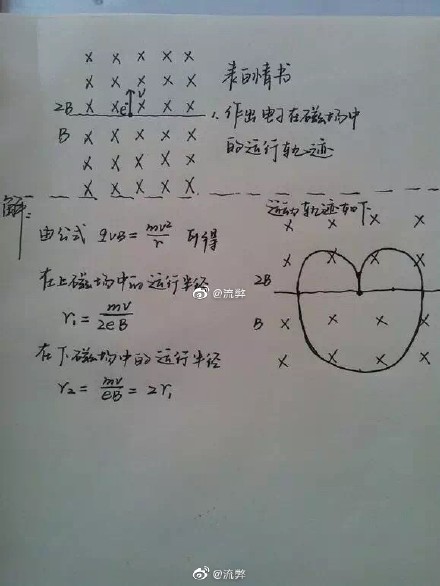 × × × × ×
× × × × ×
v
2B × × e × × ×
B × × × × ×
× × × × ×
× × × × ×
表白情书
1. 作出电子在磁场中
的运行轨迹
解:
由公式 qvB = mv²/r 可得
在上磁场中的运行半径
r₁ = mv/2eB
在下磁场中的运行半径
r₂ = mv/eB = 2r₁
运动轨迹如下:
× × × ×
× × × ×
2B
B × × × ×
× × × ×
@流弊
@流弊